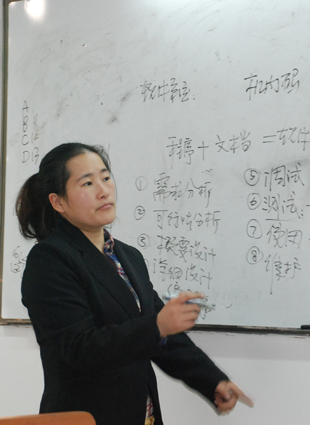 软件
机构强
程序 + 文档 = 软件
A
B
C
D
① 需求分析
② 可行性分析
③ 概要设计
详细设计
⑤ 调试
⑥ 测试
⑦ 使用
⑧ 维护